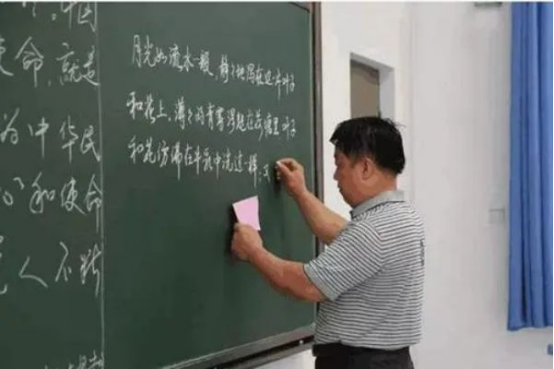 中国
使命，就是
为中华民
和使命
人不断
月光如流水一般，静々地泻在这片叶子
和花上。薄々的青雾浮起在荷塘里。叶子
和花仿佛在牛乳中洗过一样；